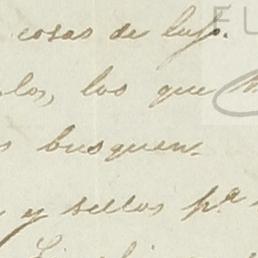 cosas de lujo.
los, los que
busquen-
y sellos pª